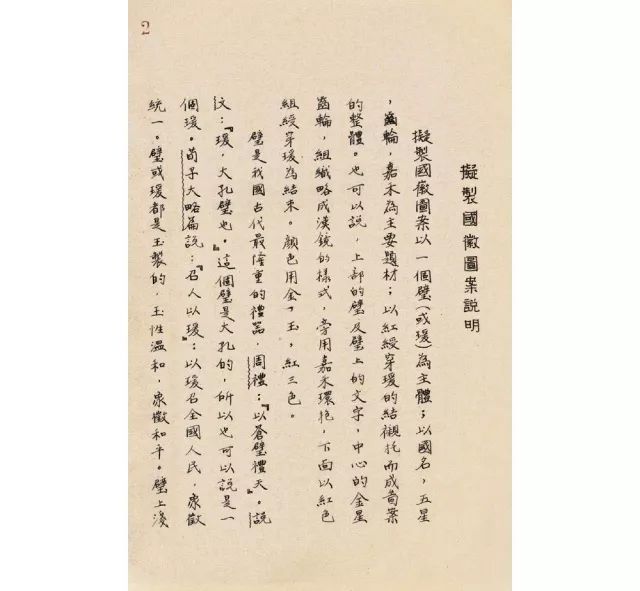 2
擬製國徽圖案説明
擬製國徽圖案以一個璧(或瑗)為主體；以國名，五星
，齒輪，嘉禾為主要題材；以紅綬穿瑗的結襯托而成圖案
的整體。也可以說，上部的璧及璧上的文字，中心的金星
齒輪，組織略成漢鏡的樣式，旁用嘉禾環抱，下面以紅色
組綬穿瑗為結束。顏色用金、玉，紅三色。
璧是我國古代最隆重的禮器．周禮：『以蒼璧禮天。說
文：『瑗，大孔璧也。』這個璧是大孔的，所以也可以說是一
個瑗。荀子大略篇說：『召人以瑗：以瑗召全國人民，象徵
統一。璧或瑗都是玉製的．玉性溫和，象徵和平。璧上淺